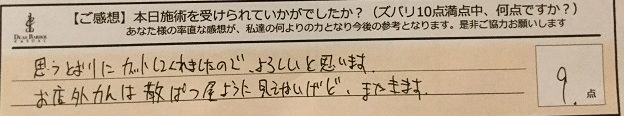 【ご感想】本日施術を受けられていかがでしたか？（ズバリ10点満点中、何点ですか？）
あなた様の率直な感想が、私達の何よりの力となり今後の参考となります。是非ご協力お願いします
DEAR BARBER
CASUAL
思うとおりにカットしてくれましたので、よろしいと思います。
お店外かんは散ぱつ屋ように見えないけど、またきます。
9.点